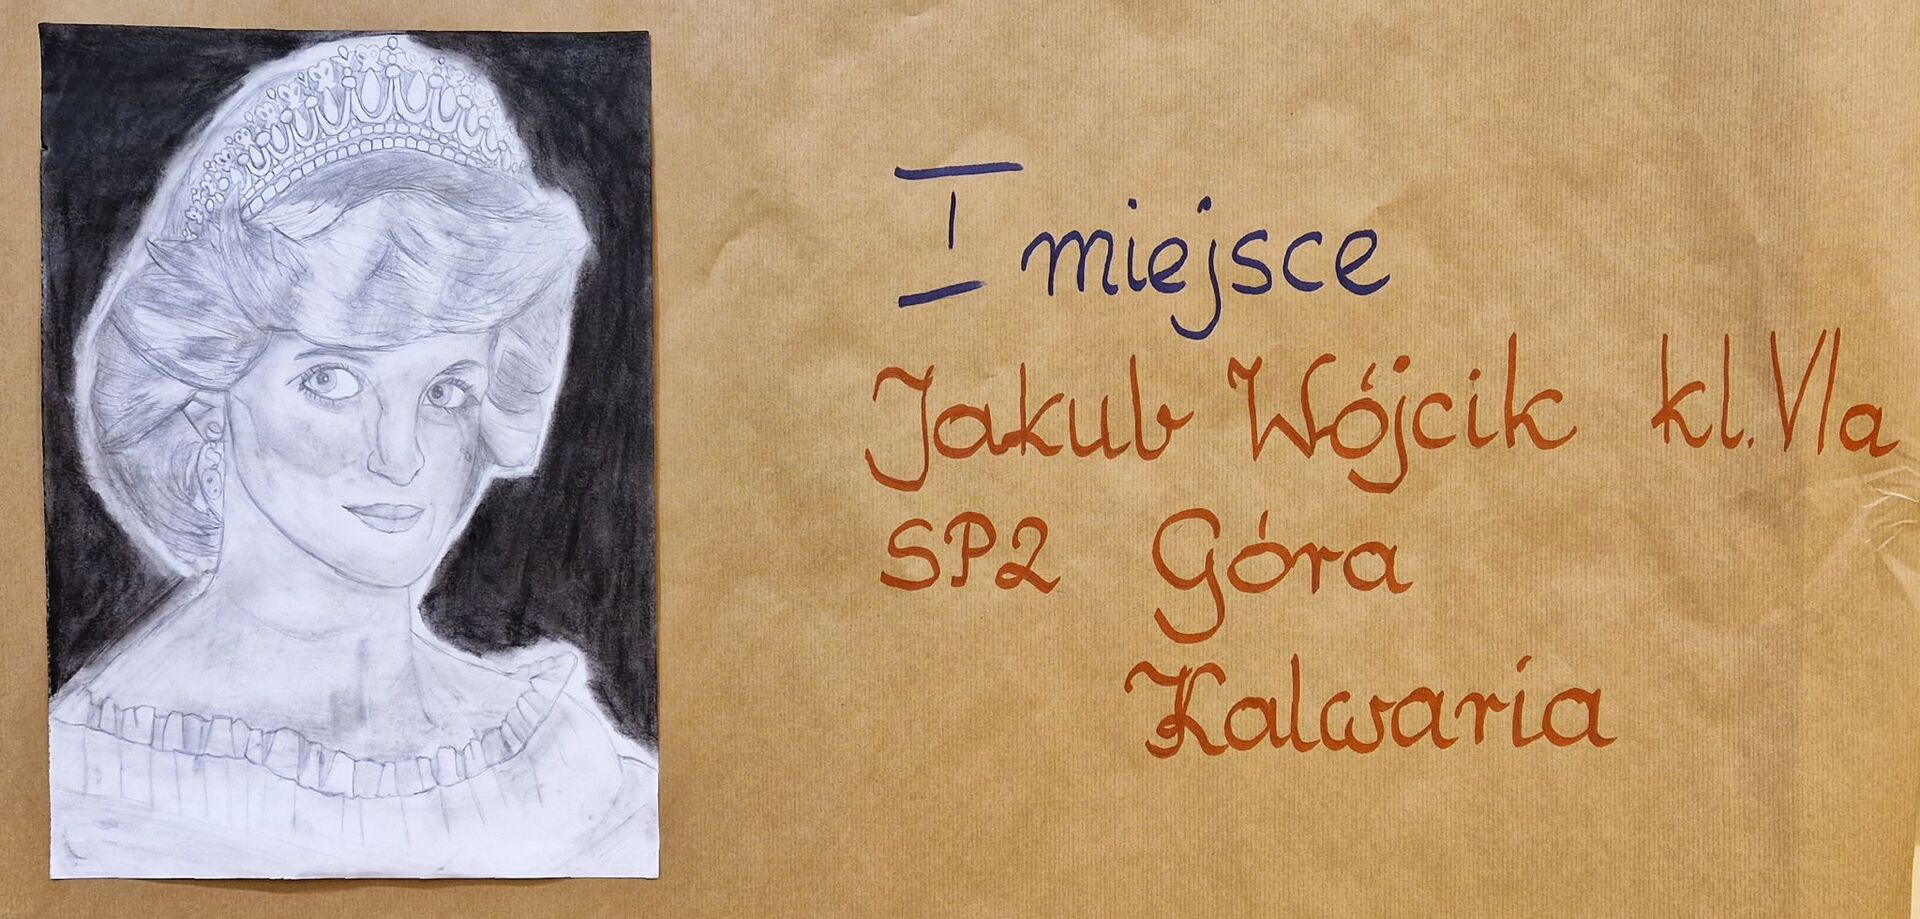 I miejsce
Jakub Wójcik kl. VIa
SP2 Góra
Kalwaria